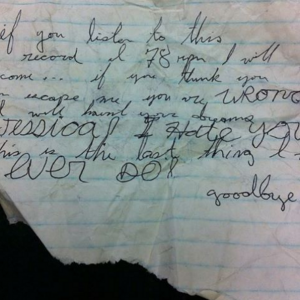 if you listen to this
record at 78 rpm I will
come... if you think you
can escape me you are WRONG
I will haunt your dreams
Jessica! I Hate YOU
this is the last thing I
EVER DO!
goodbye